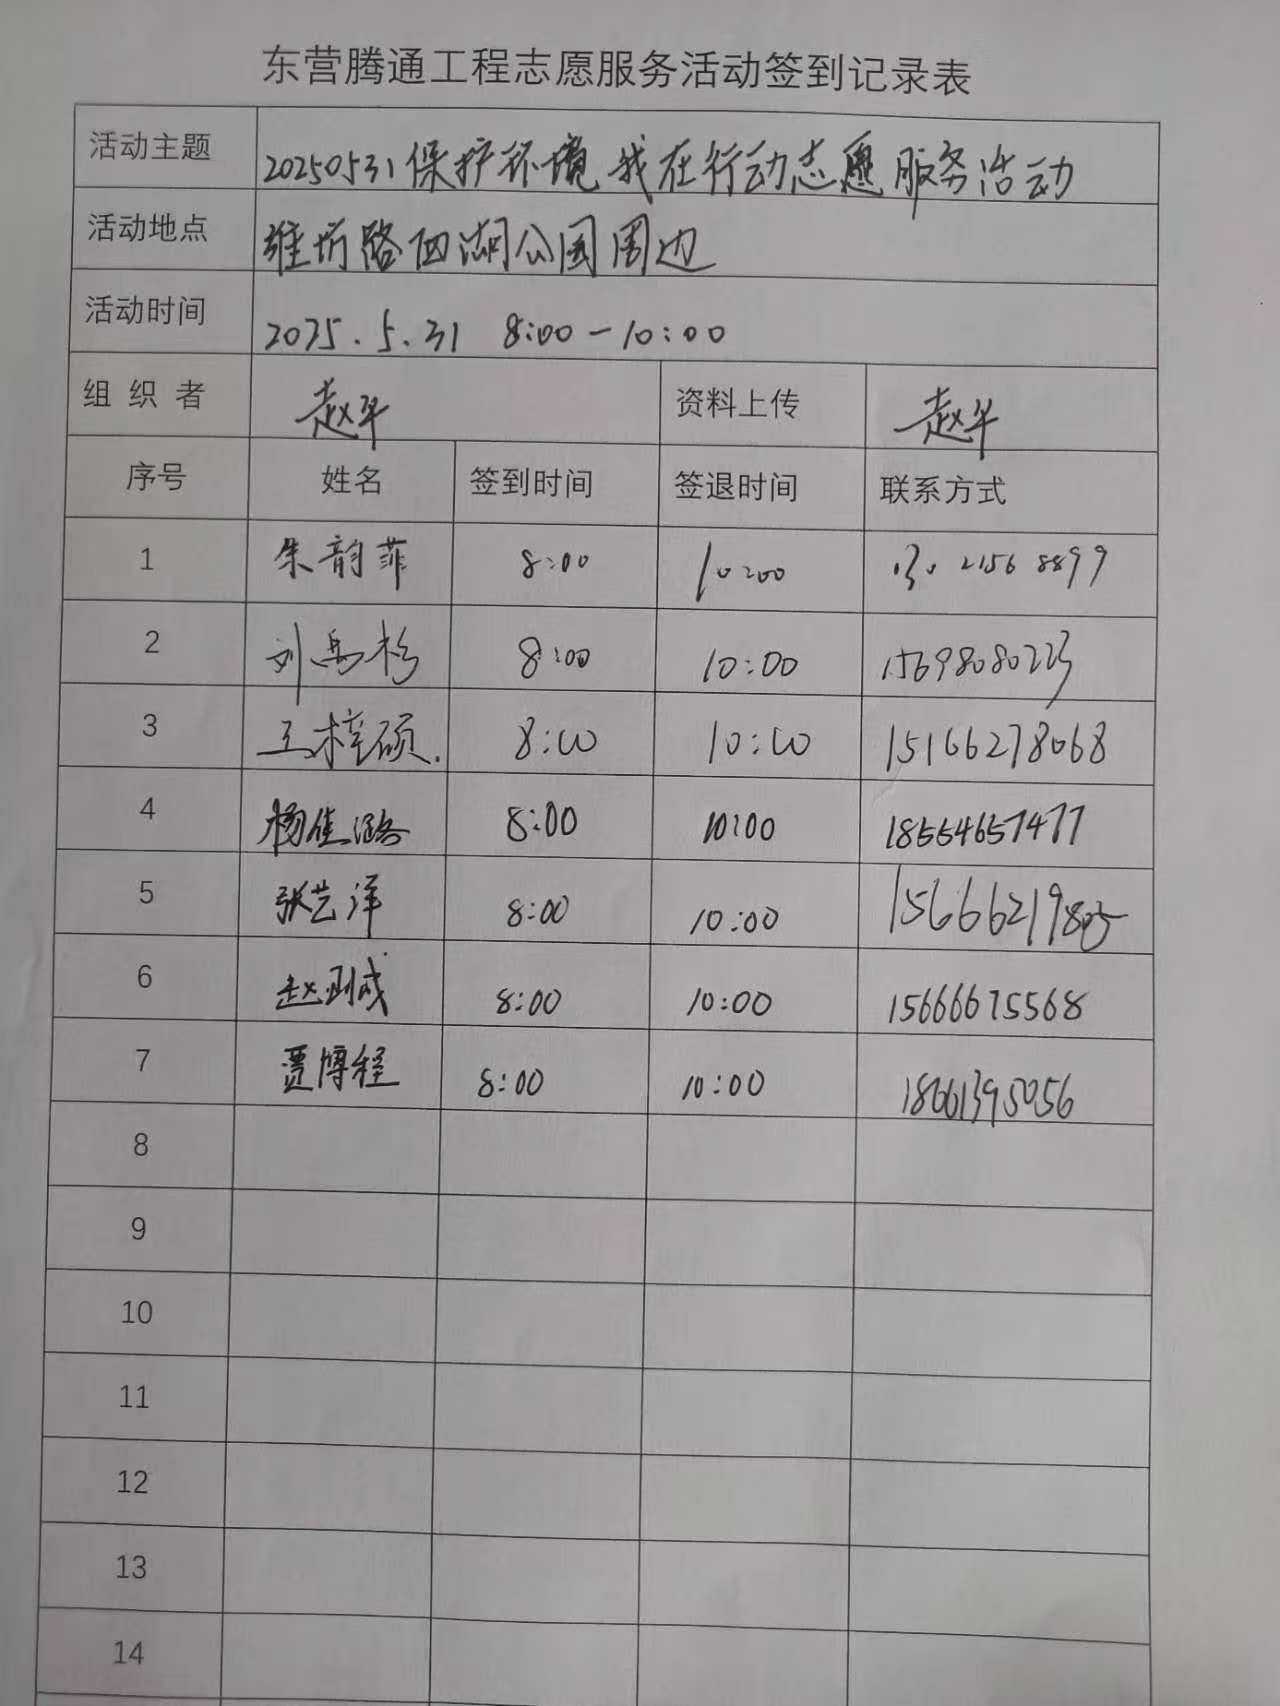 东营腾通工程志愿服务活动签到记录表
活动主题 20250531保护环境我在行动志愿服务活动
活动地点 潍坊路西湖公园周边
活动时间 2025.5.31 8:00-10:00
组织者 赵华 资料上传 赵华
序号 姓名 签到时间 签退时间 联系方式
1 朱韵菲 8:00 10:00
2 刘禹杉 8:00 10:00 15698080223
3 王梓硕 8:00 10:00 15166278068
4 杨佳潞 8:00 10:00 18554657477
5 张艺洋 8:00 10:00 15666219805
6 8:00 10:00 15666675568
7 贾博程 8:00 10:00 18661395056
8
9
10
11
12
13
14